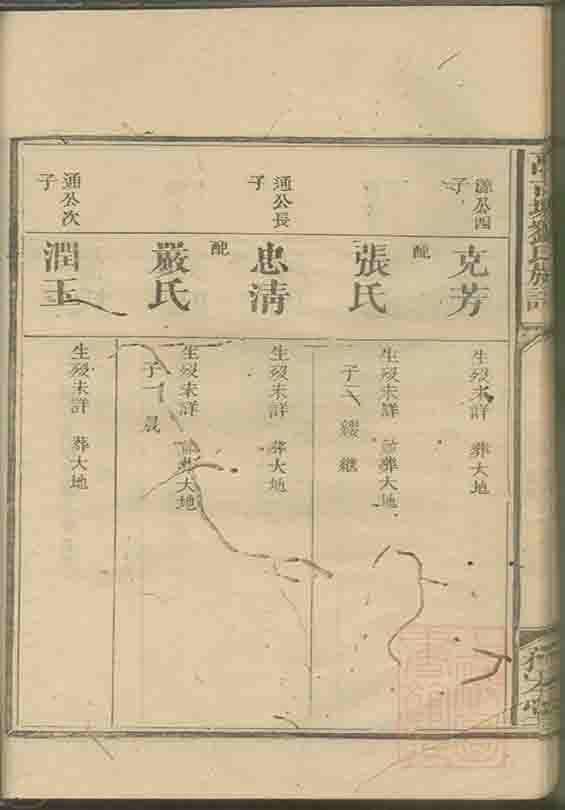 劉氏族譜
源公四
子
克芳
生歿未詳 葬大地
配
張氏
生歿未詳 葬大地
子二 繼
通公長
子
忠清
生歿未詳 葬大地
配
嚴氏
生歿未詳 葬大地
子一 晟
通公次
子
潤玉
生歿未詳 葬大地